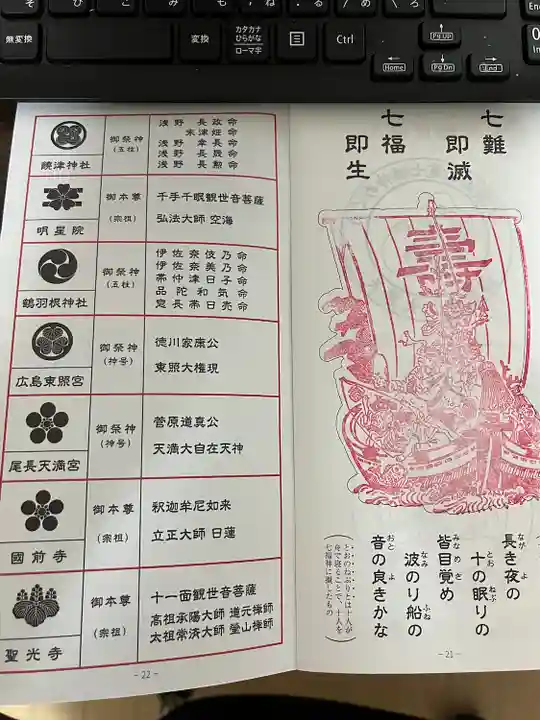 そ
ひ
こ
み
も
ね
る
め
ろ
無変換
変換
カタカナ
ひらがな
ローマ字
Ctrl
Pg Up
Home
Pg Dn
End
End
0
In
饒津神社
御祭神
(五柱)
浅野 長政 命
末津姫 命
浅野 幸長 命
浅野 長晟 命
浅野 長勲 命
明星院
御本尊
(宗祖)
千手千眼観世音菩薩
弘法大師 空海
鶴羽根神社
御祭神
(五柱)
伊佐奈伎乃命
伊佐奈美乃命
帯仲津日子命
品陀和気命
息長帯日売命
広島東照宮
御祭神
(神号)
徳川家康公
東照大権現
尾長天満宮
御祭神
(神号)
菅原道真公
天満大自在天神
國前寺
御本尊
(宗祖)
釈迦牟尼如来
立正大師 日蓮
聖光寺
御本尊
(宗祖)
十一面観世音菩薩
高祖承陽大師 道元禅師
太祖常済大師 瑩山禅師
－22－
七難
即滅
七福
即生
壽
長き夜の
なが よ
十の眠りの
とお ねぶ
皆目覚め
みな め ざ
波のり船の
なみ ふね
音の良きかな
おと よ
(とおのねぶりとは十人が
舟で寝ることで、十人を
七福神に擬したもの)
－21－